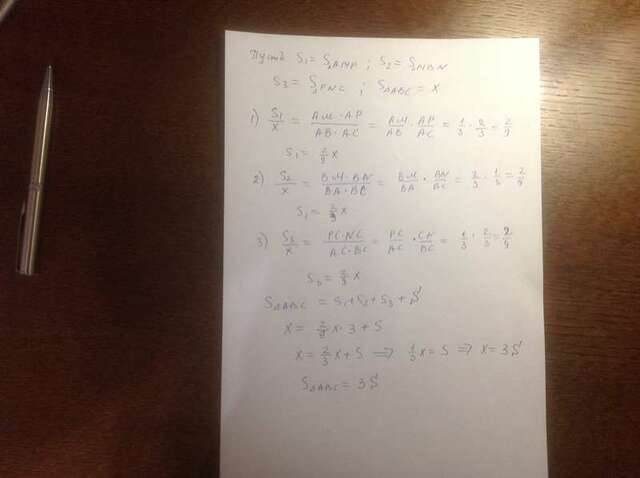 Пусть S₁ = S△AMP ; S₂ = S△MBN
S₃ = S△PNC ; S△ABC = x
1) S₁/x = AM·AP/AB·AC = AM/AB · AP/AC = 1/3 · 2/3 = 2/9
S₁ = 2/9 x
2) S₂/x = BM·BN/BA·BC = BM/BA · BN/BC = 2/3 · 1/3 = 2/9
S₁ = 2/9 x
3) S₃/x = PC·NC/AC·BC = PC/AC · CN/BC = 1/3 · 2/3 = 2/9
S₃ = 2/9 x
S△ABC = S₁ + S₂ + S₃ + S
x = 2/9 x · 3 + S
x = 2/3 x + S ⟹ 1/3 x = S ⟹ x = 3S
S△ABC = 3S